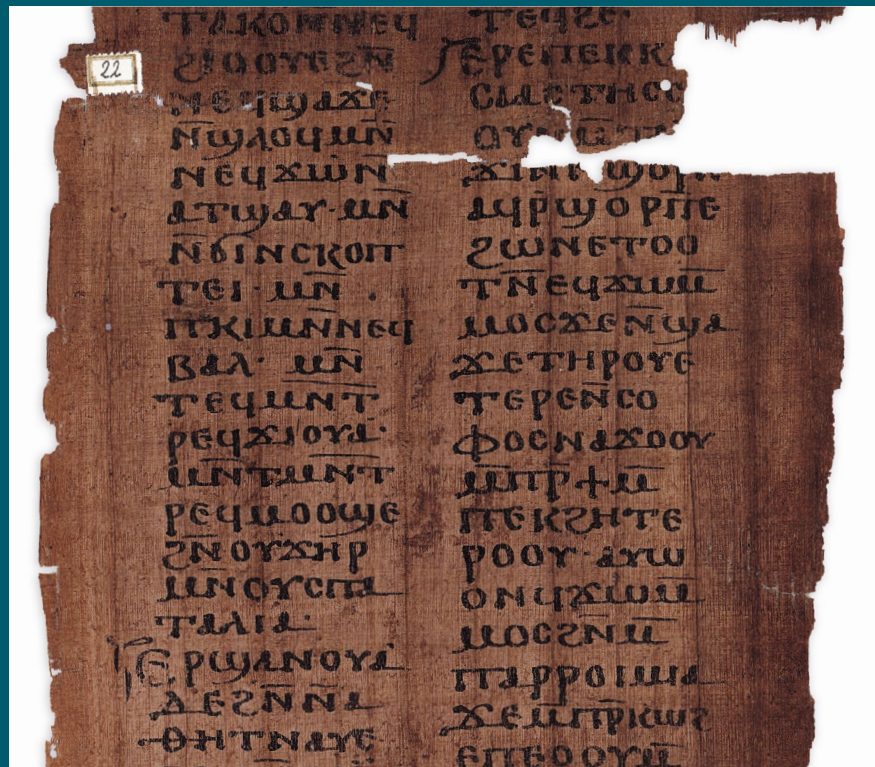 22
ⲧⲁⲕⲟⲙⲛ̄ⲛⲉϥ
ϩⲓⲟⲟⲩⲉϩⲛ̄
ⲛⲉϥϣⲁϫⲉ
ⲛ̄ϣⲗⲟϥⲙⲛ̄
ⲛⲉϥϫⲱⲛ̄
ⲁⲧϣⲁⲩ·ⲙⲛ̄
ⲛ̄ϭⲓⲛⲥⲕⲟⲡ
ⲧⲉⲓ·ⲙⲛ̄
ⲡⲕⲓⲙⲛ̄ⲛⲉϥ
ⲃⲁⲗ· ⲙⲛ̄
ⲧⲉϥⲙⲛ̄ⲧ
ⲣⲉϥϫⲓⲟⲩⲁ·
ⲙⲛ̄ⲧⲙⲛ̄ⲧ
ⲣⲉϥⲙⲟⲟϣⲉ
ϩⲛ̄ⲟⲩϫⲏⲣ
ⲙⲛ̄ⲟⲩⲥⲡⲁ
ⲧⲁⲗⲓⲁ·
ⲉⲣϣⲁⲛⲟⲩⲁ
ⲇⲉϩⲛ̄ⲛ̄ⲁ
ⲑⲏⲧⲛⲁⲩⲉ
ⲧⲉϥϩⲉ·
ⲉⲣⲉⲡⲉⲕⲕ
ⲥⲓⲁⲥⲧⲏⲥⲥ
ⲁϥⲣ̄ϣⲟⲣⲡⲉ
ϩⲱⲛⲉⲧⲟⲟ
ⲧⲛ̄ⲉϥϫⲱⲙ̄
ⲙⲟⲥϫⲉⲛ̄ϣⲁ
ϫⲉⲧⲏⲣⲟⲩⲉ
ⲧⲉⲣⲉⲛ̄ⲥⲟ
ⲫⲟⲥⲛⲁϫⲟⲟⲩ
ⲙ̄ⲡⲣ̄ϯⲙ̄
ⲡⲉⲕϩⲏⲧⲉ
ⲣⲟⲟⲩ·ⲁⲩⲱ
ⲟⲛϥϫⲱⲙ̄
ⲙⲟⲥϩⲛ̄ⲙ̄
ⲡⲁⲣⲣⲟⲓⲙⲓⲁ
ϫⲉⲙ̄ⲡⲣ̄ⲕⲱϩ
ⲉⲡⲉⲟⲟⲩⲙ̄